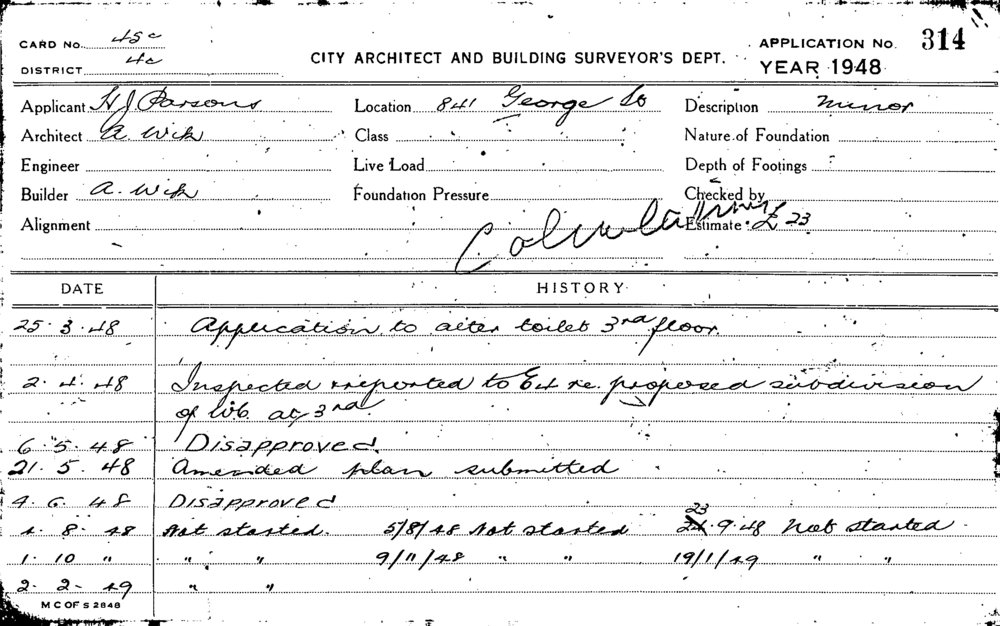 CARD No. 45c
DISTRICT 4c
CITY ARCHITECT AND BUILDING SURVEYOR'S DEPT.
APPLICATION No. 314
YEAR 1948
Applicant H J Parsons Location 841 George St Description Minor
Architect A. Wik Class Nature of Foundation
Engineer Live Load Depth of Footings
Builder A. Wik Foundation Pressure Checked by
Alignment Estimate £ 23
DATE HISTORY
25. 3. 48 Application to alter toilet 3rd floor.
2. 4. 48 Inspected & reported to re. proposed subdivision
of W.C. at 3rd
6. 5. 48 Disapproved
21. 5. 48 Amended plan submitted
4. 6. 48 Disapproved
4. 8. 48 Not started. 5/8/48 Not started 23 24 9. 48 Not started
1. 10 " " " 9/11/48 " " 19/1/49 " "
2. 2. 49 " "
M C OF S 2848